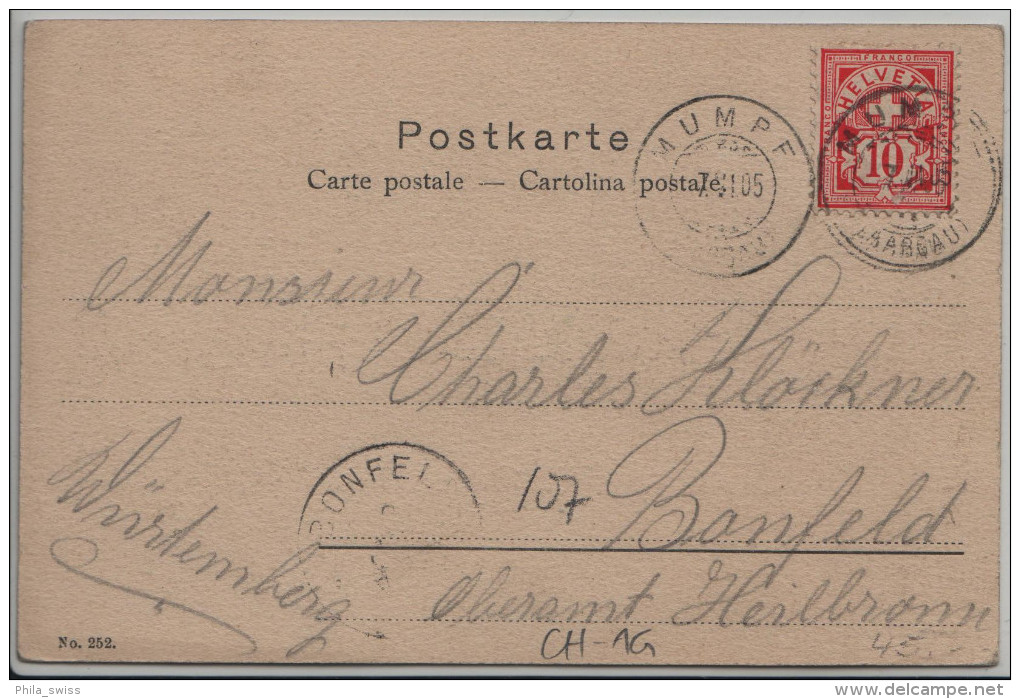 FRANCO
FRANCO
HELVETIA
10
MUMPF
7.VI.05
(AARGAU)
Postkarte
Carte postale — Cartolina postale.
Monsieur
Charles Klöckner
BONFEL
107
Bonfeld
Würtemberg
Oberamt Heilbronn
No. 252.
CH-AG
45.-
Phila_swiss
www.delcampe.net